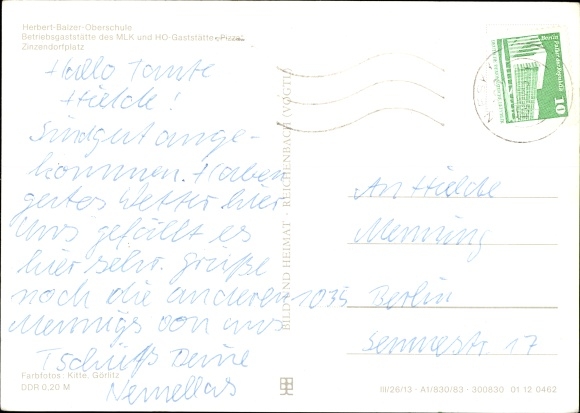 Herbert-Balzer-Oberschule
Betriebsgaststätte des MLK und HO-Gaststätte „Pizza“
Zinzendorfplatz
Hallo Tante
Hielde!
Sind gut ange-
kommen. Haben
gutes Wetter hier
Uns gefällt es
hier sehr. Grüße
noch die anderen
Mennigs von uns
Tschüß Deine
Farbfotos: Kitte, Görlitz
DDR 0,20 M
BILD UND HEIMAT · REICHENBACH (VOGTL)
Berlin
10
An Hielde
Mennung
1035 Berlin
17
III/26/13 - A1/830/83 - 300830 01 12 0462